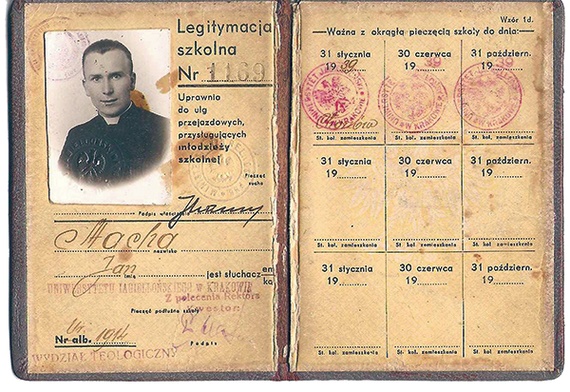 Legitymacja
szkolna
Nr 1169
Uprawnia
do ulg
przejazdowych,
przysługujących
młodzieży
szkolnej
Pieczęć
sucha
Podpis
Macha
nazwisko
Jan
imię
jest słuchacz
em
ką
UNIWERSYTETU JAGIELLOŃSKIEGO w KRAKOWIE
Z polecenia Rektora
Pieczęć podłużna szkoły
Nr alb.
Podpis
WYDZIAŁ TEOLOGICZNY
Wzór 1d.
Ważna z okrągłą pieczęcią szkoły do dnia:
31 stycznia 30 czerwca 31 październ.
1939 1939 1939
St. kol. zamieszkania St. kol. zamieszkania St. kol. zamieszkania
31 stycznia 30 czerwca 31 październ.
19 19 19
St. kol. zamieszkania St. kol. zamieszkania St. kol. zamieszkania
31 stycznia 30 czerwca 31 październ.
19 19 19
St. kol. zamieszkania St. kol. zamieszkania St. kol. zamieszkania